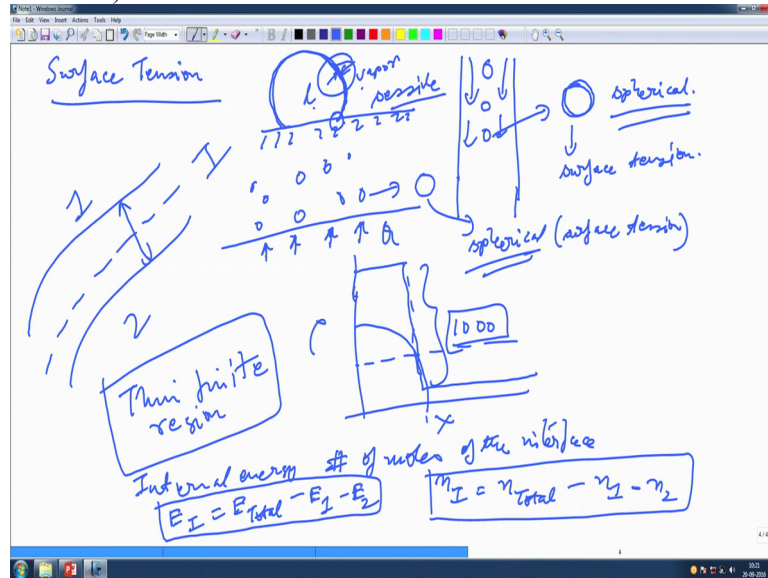 Note1 - Windows Journal
File Edit View Insert Actions Tools Help
Page Width
B I
Surface Tension
l
vapor
sessile
spherical.
surface tension.
Q
spherical (surface tension)
1
I
2
Thin finite
region
1000
x
Internal energy # of moles of the interface
E_I = E_Total - E_1 - E_2
n_I = n_Total - n_1 - n_2
4
4/4
10:21
20-09-2016